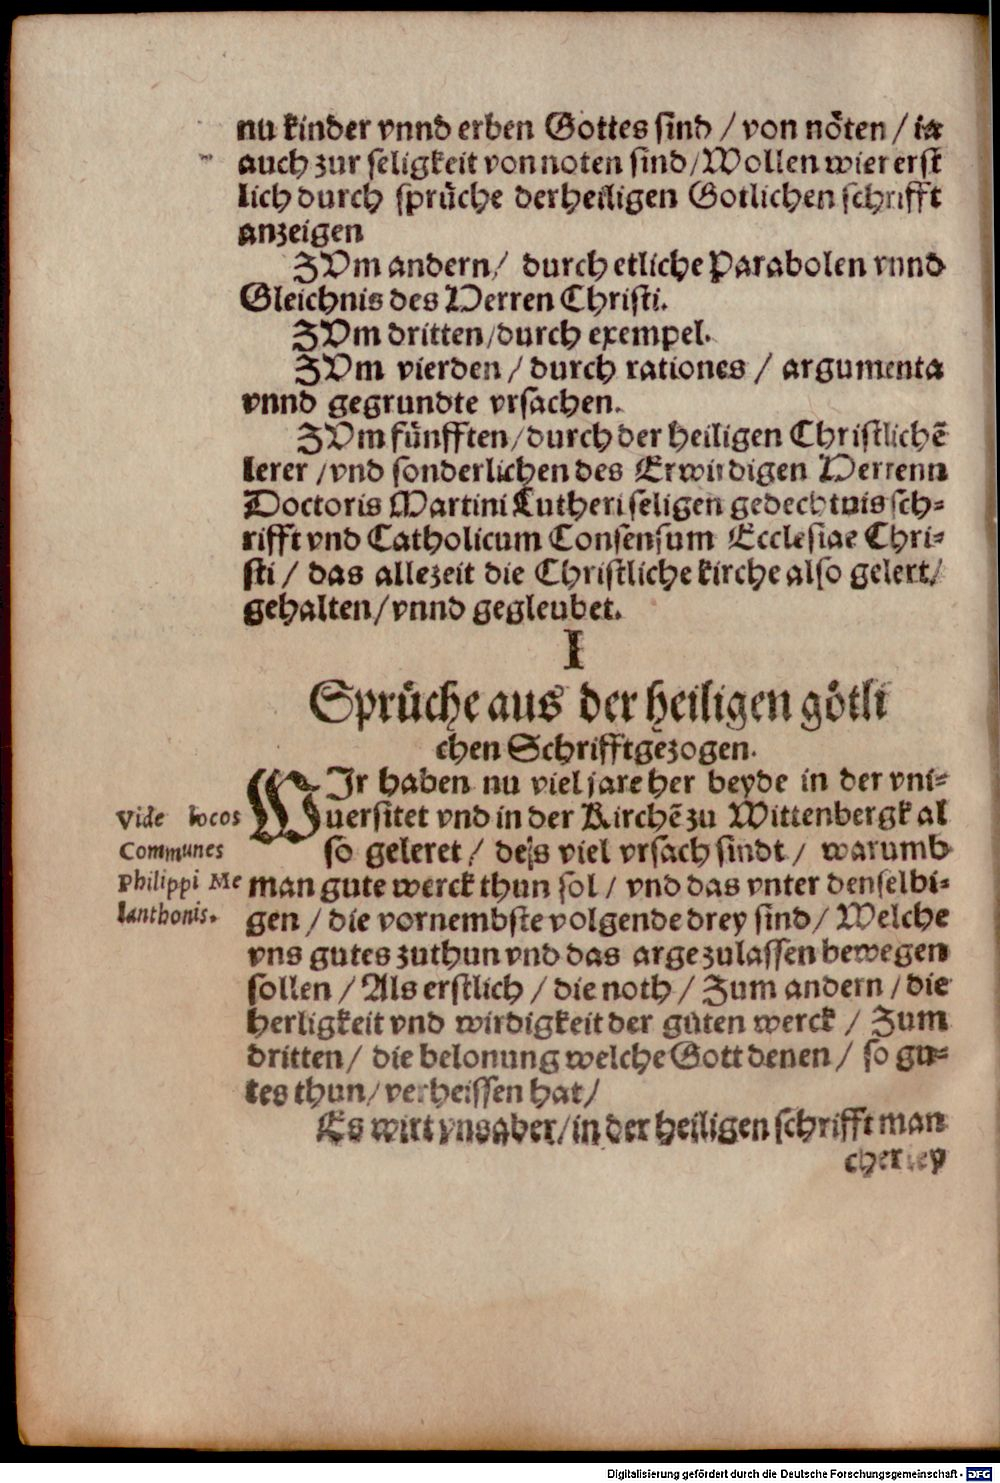 nu kinder vnnd erben Gottes sind / von nöten / ia
auch zur seligkeit von noten sind/Wollen wier erst
lich durch sprüche der heiligen Gotlichen schrifft
anzeigen
ZVm andern/ durch etliche Parabolen vnnd
Gleichnis des Herren Christi.
ZVm dritten/durch exempel.
ZVm vierden / durch rationes / argumenta
vnnd gegrundte vrsachen.
ZVm fünfften/durch der heiligen Christlichē
lerer /vnd sonderlichen des Erwirdigen Herrenn
Doctoris Martini Lutheri seligen gedechtnis sch-
rifft vnd Catholicum Consensum Ecclesiae Chri-
sti / das allezeit die Christliche kirche also gelert/
gehalten/vnnd gegleubet.
I
Sprüche aus der heiligen götli
chen Schrifft gezogen.
WIr haben nu viel jare her beyde in der vni-
uersitet vnd in der Kirchē zu Wittenbergk al
so geleret / dejs viel vrsach sindt / warumb
man gute werck thun sol / vnd das vnter denselbi-
gen / die vornembste volgende drey sind/ Welche
vns gutes zuthun vnd das arge zulassen bewegen
sollen / Als erstlich / die noth / Zum andern / die
herligkeit vnd wirdigkeit der guten werck / Zum
dritten/ die belonung welche Gott denen / so gu-
tes thun/ verheissen hat/
Es wirt vns aber/in der heiligen schrifft man
cherley
Vide locos
Communes
Philippi Me
lanthonis.
Digitalisierung gefördert durch die Deutsche Forschungsgemeinschaft - DFG